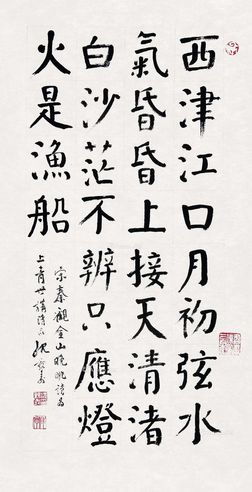 西津江口月初弦水
氣昏昏上接天清渚
白沙茫不辨只應燈
火是漁船
宋秦觀金山晚眺詩為
上育世講